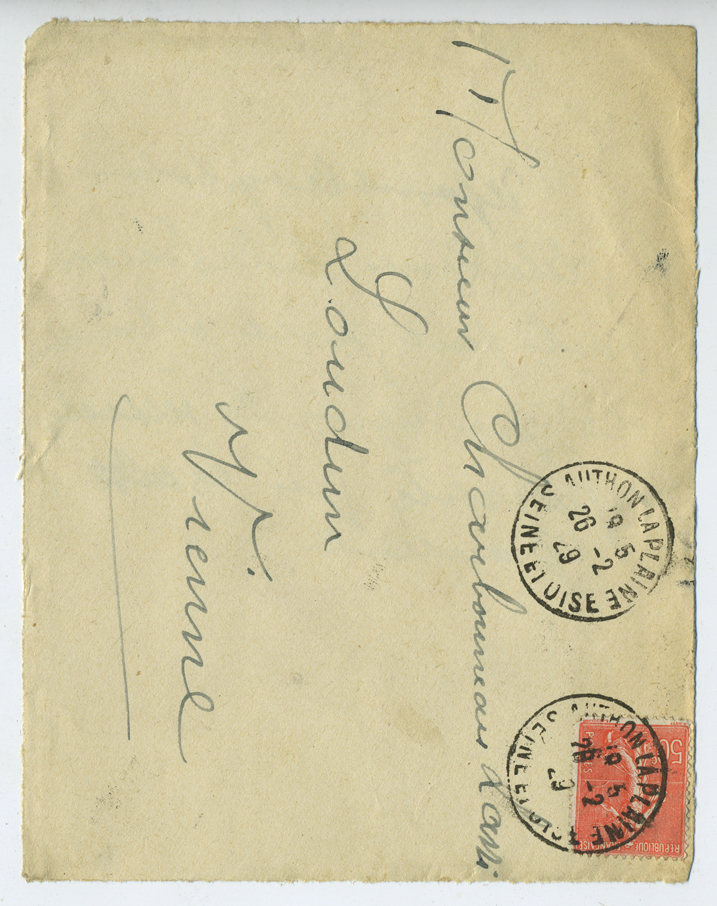 Monsieur Charbonneau Lassi
Loudun
Vienne
AUTHON LA PLAINE
19 5
26 -2
29
SEINE ET OISE
AUTHON LA PLAINE
19 5
26 -2
29
SEINE ET OISE
50
POSTES
REPUBLIQUE FRANÇAISE